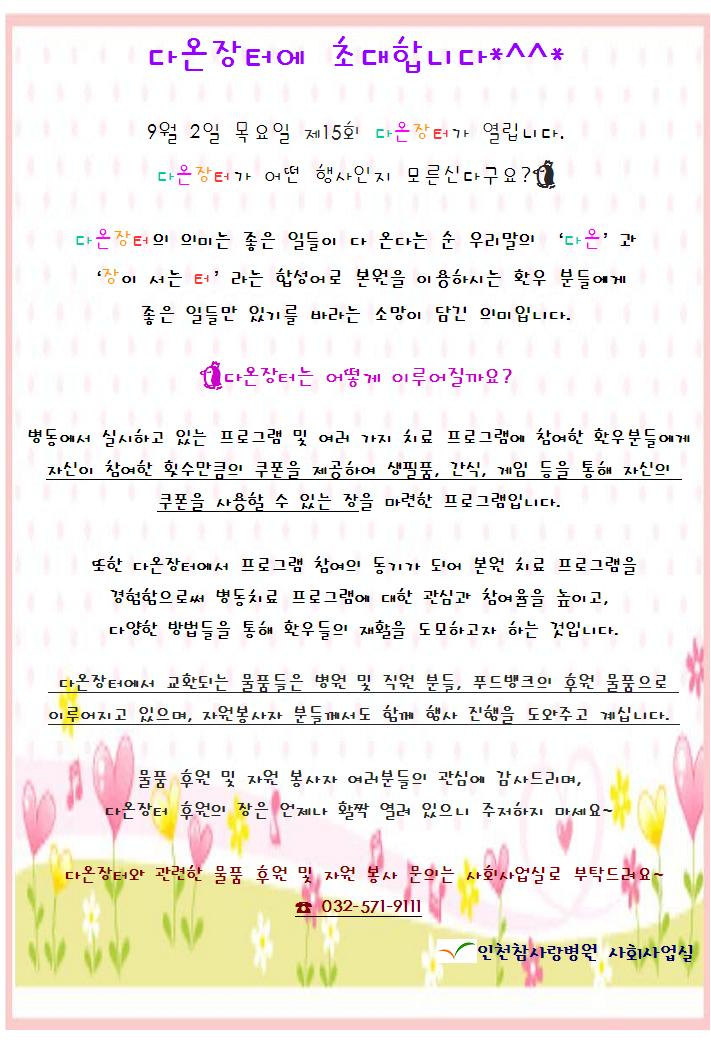 다온장터에 초대합니다*^^*
9월 2일 목요일 제15회 다온장터가 열립니다.
다온장터가 어떤 행사인지 모른신다구요?
다온장터의 의미는 좋은 일들이 다 온다는 순 우리말의 ‘다온’ 과
‘장이 서는 터’ 라는 합성어로 본원을 이용하시는 환우 분들에게
좋은 일들만 있기를 바라는 소망이 담긴 의미입니다.
다온장터는 어떻게 이루어질까요?
병동에서 실시하고 있는 프로그램 및 여러 가지 치료 프로그램에 참여한 환우분들에게
자신이 참여한 횟수만큼의 쿠폰을 제공하여 생필품, 간식, 게임 등을 통해 자신의
쿠폰을 사용할 수 있는 장을 마련한 프로그램입니다.
또한 다온장터에서 프로그램 참여의 동기가 되어 본원 치료 프로그램을
경험함으로써 병동치료 프로그램에 대한 관심과 참여율을 높이고,
다양한 방법들을 통해 환우들의 재활을 도모하고자 하는 것입니다.
다온장터에서 교환되는 물품들은 병원 및 직원 분들, 푸드뱅크의 후원 물품으로
이루어지고 있으며, 자원봉사자 분들께서도 함께 행사 진행을 도와주고 계십니다.
물품 후원 및 자원 봉사자 여러분들의 관심에 감사드리며,
다온장터 후원의 장은 언제나 활짝 열려 있으니 주저하지 마세요~
다온장터와 관련한 물품 후원 및 자원 봉사 문의는 사회사업실로 부탁드려요~
☎ 032-571-9111
인천참사랑병원 사회사업실